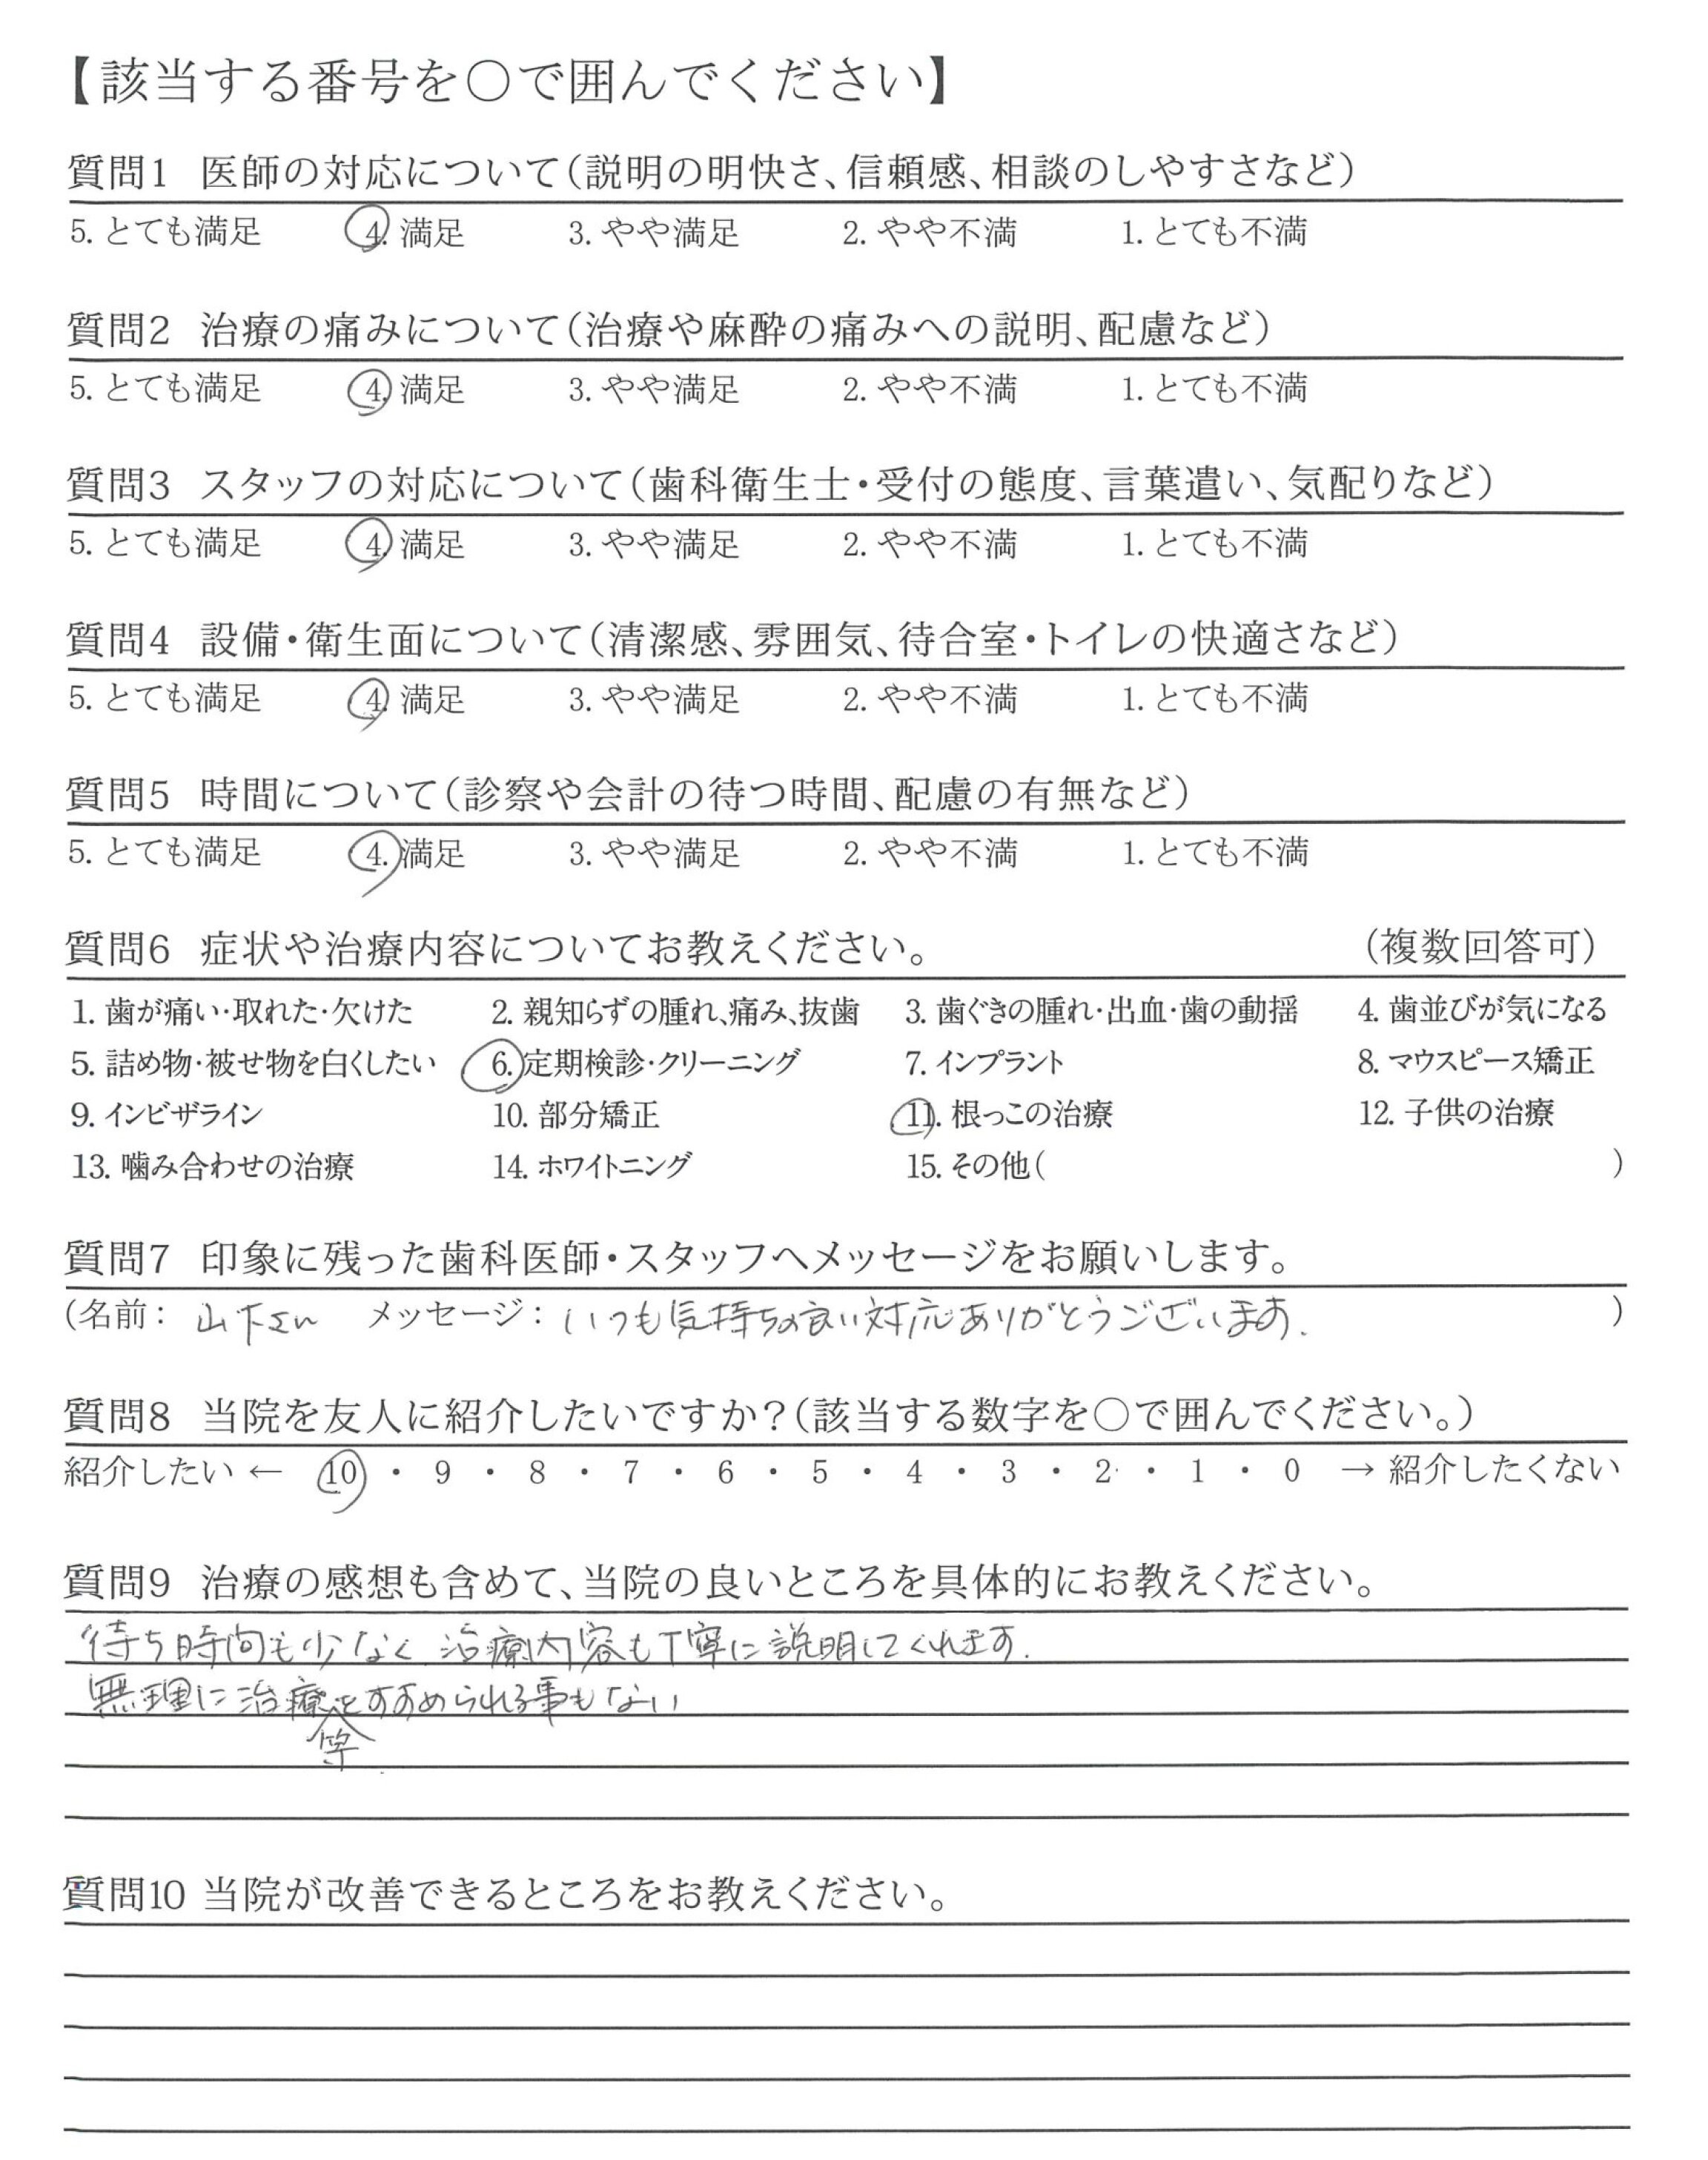 【該当する番号を〇で囲んでください】
質問1 医師の対応について(説明の明快さ、信頼感、相談のしやすさなど)
5. とても満足 4. 満足 3. やや満足 2. やや不満 1. とても不満
質問2 治療の痛みについて(治療や麻酔の痛みへの説明、配慮など)
5. とても満足 4. 満足 3. やや満足 2. やや不満 1. とても不満
質問3 スタッフの対応について(歯科衛生士・受付の態度、言葉遣い、気配りなど)
5. とても満足 4. 満足 3. やや満足 2. やや不満 1. とても不満
質問4 設備・衛生面について(清潔感、雰囲気、待合室・トイレの快適さなど)
5. とても満足 4. 満足 3. やや満足 2. やや不満 1. とても不満
質問5 時間について(診察や会計の待つ時間、配慮の有無など)
5. とても満足 4. 満足 3. やや満足 2. やや不満 1. とても不満
質問6 症状や治療内容についてお教えください。 (複数回答可)
1. 歯が痛い・取れた・欠けた 2. 親知らずの腫れ、痛み、抜歯 3. 歯ぐきの腫れ・出血・歯の動揺 4. 歯並びが気になる
5. 詰め物・被せ物を白くしたい 6. 定期検診・クリーニング 7. インプラント 8. マウスピース矯正
9. インビザライン 10. 部分矯正 11. 根っこの治療 12. 子供の治療
13. 噛み合わせの治療 14. ホワイトニング 15. その他( )
質問7 印象に残った歯科医師・スタッフへメッセージをお願いします。
(名前: 山下さん メッセージ: いつも気持ちの良い対応ありがとうございます. )
質問8 当院を友人に紹介したいですか?(該当する数字を〇で囲んでください。)
紹介したい ← 10 ・ 9 ・ 8 ・ 7 ・ 6 ・ 5 ・ 4 ・ 3 ・ 2 ・ 1 ・ 0 → 紹介したくない
質問9 治療の感想も含めて、当院の良いところを具体的にお教えください。
待ち時間も少なく、治療内容も丁寧に説明してくれます.
無理に治療をすすめられる事もない
等
質問10 当院が改善できるところをお教えください。